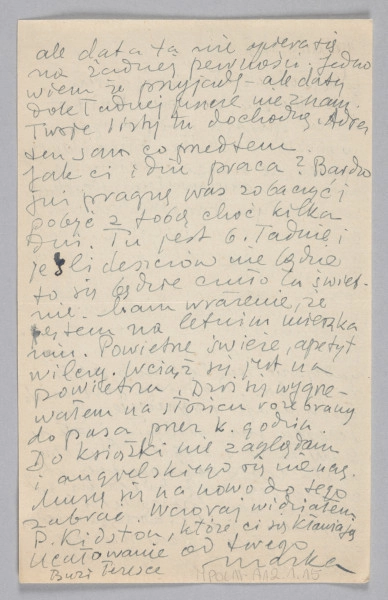 ale data ta nie opiera się
na żadnej pewności. Jedno
wiem że przyjadę – ale daty
dokładnej jeszcze nie znam.
Twoje listy tu dochodzą. Adres
ten sam co przedtem.
Jak ci idzie praca? Bardzo
już pragnę was zobaczyć i
pobyć z tobą choć kilka
dni. Tu jest b. ładnie i
jeśli deszczów nie będzie
to się będzie czuło tu świet-
nie. Mam wrażenie, że
jestem na letnim mieszka
niu. Powietrze świeże, apetyt
wilczy. Wciąż się jest na
powietrzu. Dziś się wygrze-
wałem na słońcu rozebrany
do pasa przez k. godzin.
Do książki nie zaglądam
i angielskiego się nie uczę.
Muszę się na nowo do tego
zabrać. Wczoraj widziałem
P. Kidston, które ci się kłaniają
Ucałowanie od twego
Marka
Buzi Teresce